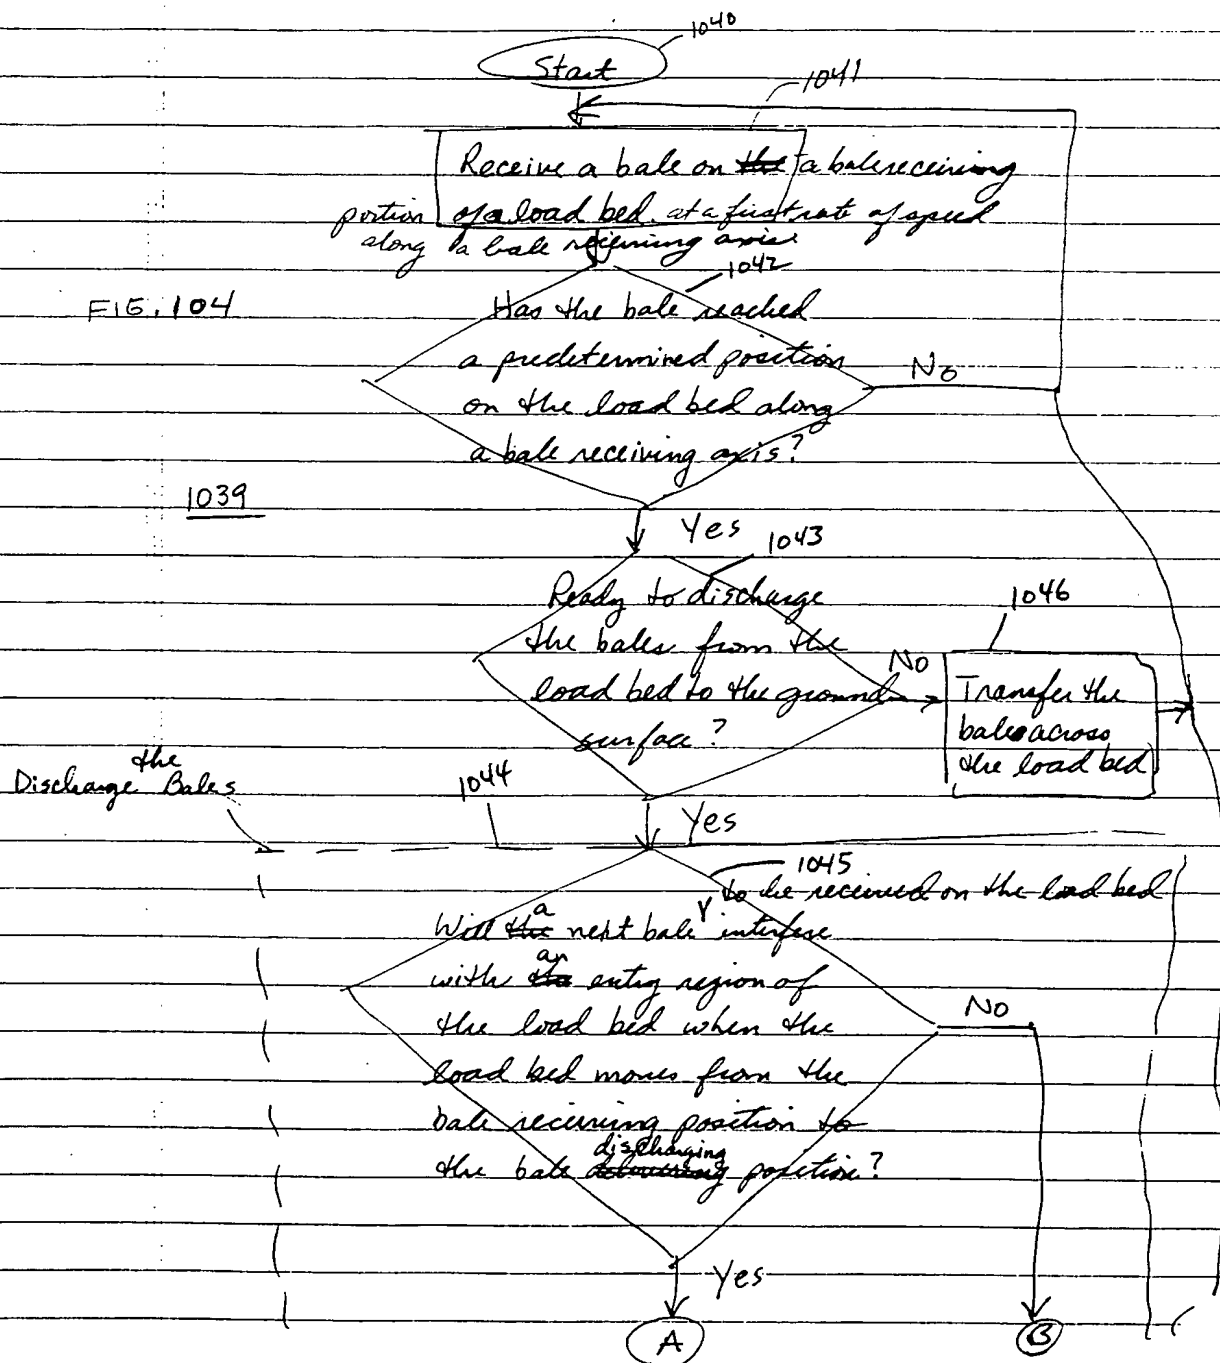 1040
Start
1041
Receive a bale on the a bale receiving
portion of a load bed. at a first rate of speed
along a bale receiving axis
1042
FIG. 104
Has the bale reached
a predetermined position
No
on the load bed along
a bale receiving axis?
1039
Yes
1043
Ready to discharge
1046
the bales from the
No
load bed to the ground
surface?
Transfer the
bales across
the load bed
the
Discharge Bales
1044
Yes
1045
to be received on the load bed
a
Will the next bale interfere
an
with the entry region of
No
the load bed when the
load bed moves from the
bale receiving position to
discharging
the bale position?
Yes
A
B